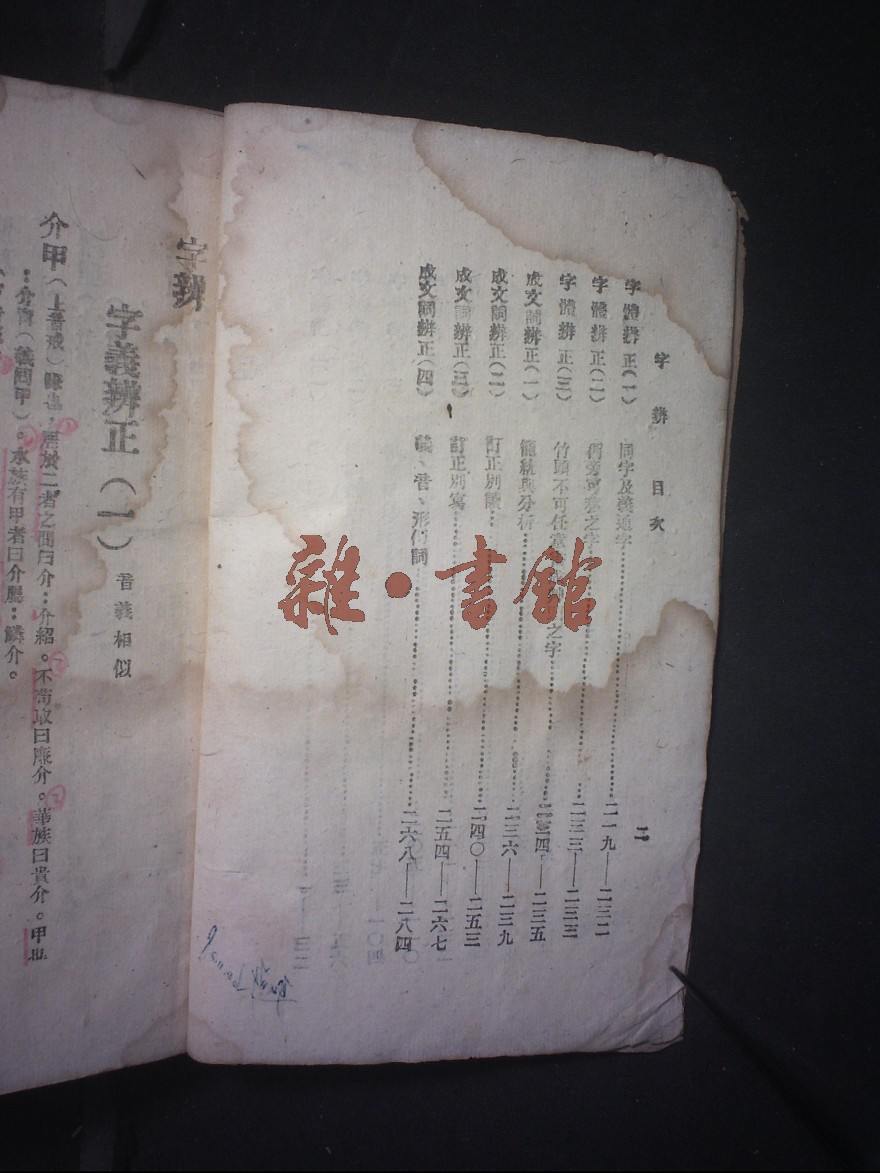 字辨 目次
二
字體辨正(一) 同字及義通字⋯⋯二一九——二三二
字體辨正(二) 之字⋯⋯二三三——二三三
字體辨正(三) 竹頭不可任意 之字⋯⋯二三四——二三五
成文詞辨正(一) 籠統與分析⋯⋯二三六——二三九
成文詞辨正(二) 訂正別讀⋯⋯二四〇——二五三
成文詞辨正(三) 訂正別寫⋯⋯二五四——二六七
成文詞辨正(四) 義、音、形 詞⋯⋯二六八——二八四
雜·書館
字辨
字義辨正(一) 音義相似
介甲(上音戒) 居於二者之間曰介:介紹。不苟取曰廉介。華族曰貴介。甲
:介冑(義同甲)。水族有甲者曰介屬:鱗介。